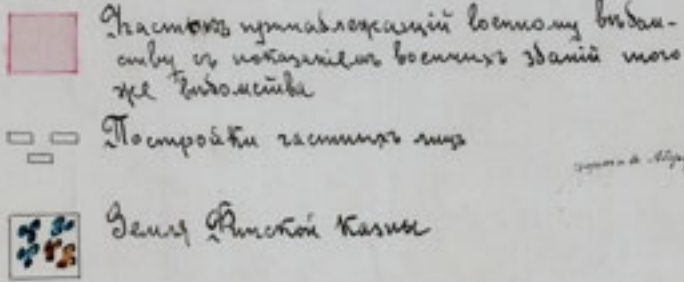 Участокъ принадлежащій военному вѣдом-
ству съ показаніемъ военныхъ зданій того
же вѣдомства
Постройки частныхъ лицъ
Земля Финской казны